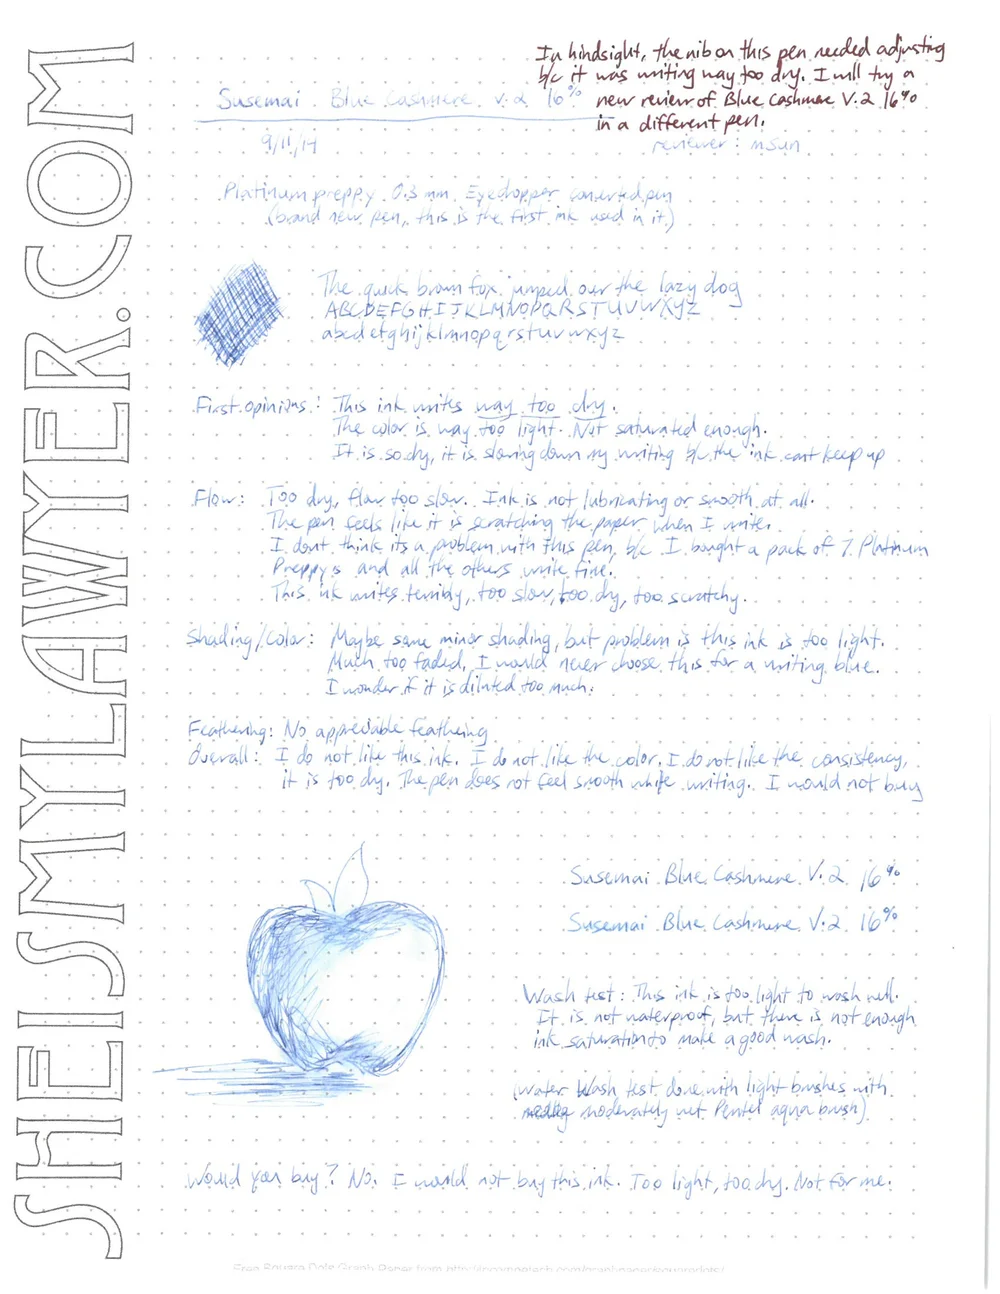 SHEISMYLAWYER.COM
In hindsight, the nib on this pen needed adjusting
b/c it was writing way too dry. I will try a
new review of Blue Cashmere V.2 16%
in a different pen.
Susemai Blue Cashmere v.2 16%
9/11/14
reviewer: nsun
Platinum preppy 0.3 mm Eyedropper converted pen
(brand new pen, this is the first ink used in it)
The quick brown fox jumped over the lazy dog
ABCDEFGHIJKLMNOPQRSTUVWXYZ
abcdefghijklmnopqrstuvwxyz
First opinions: This ink writes way too dry.
The color is way too light. Not saturated enough.
It is so dry, it is slowing down my writing b/c the ink cant keep up
Flow: Too dry, flow too slow. Ink is not lubricating or smooth at all.
The pen feels like it is scratching the paper when I write.
I dont think its a problem with this pen b/c I bought a pack of 7 Platinum
Preppys and all the others write fine.
This ink writes terribly, too slow, too dry, too scratchy.
Shading/Color: Maybe some minor shading, but problem is this ink is too light.
Much too faded, I would never choose this for a writing blue.
I wonder if it is diluted too much.
Feathering: No appreciable feathering
Overall: I do not like this ink. I do not like the color, I do not like the consistency,
it is too dry. The pen does not feel smooth while writing. I would not buy
Susemai Blue Cashmere V.2 16%
Susemai Blue Cashmere V.2 16%
Wash test: This ink is too light to wash well.
It is not waterproof, but there is not enough
ink saturation to make a good wash.
(Water Wash test done with light brushes with
moderately wet Pentel aqua brush)
Would you buy? No. I would not buy this ink. Too light, too dry. Not for me.
Free Square Dots Graph Paper from